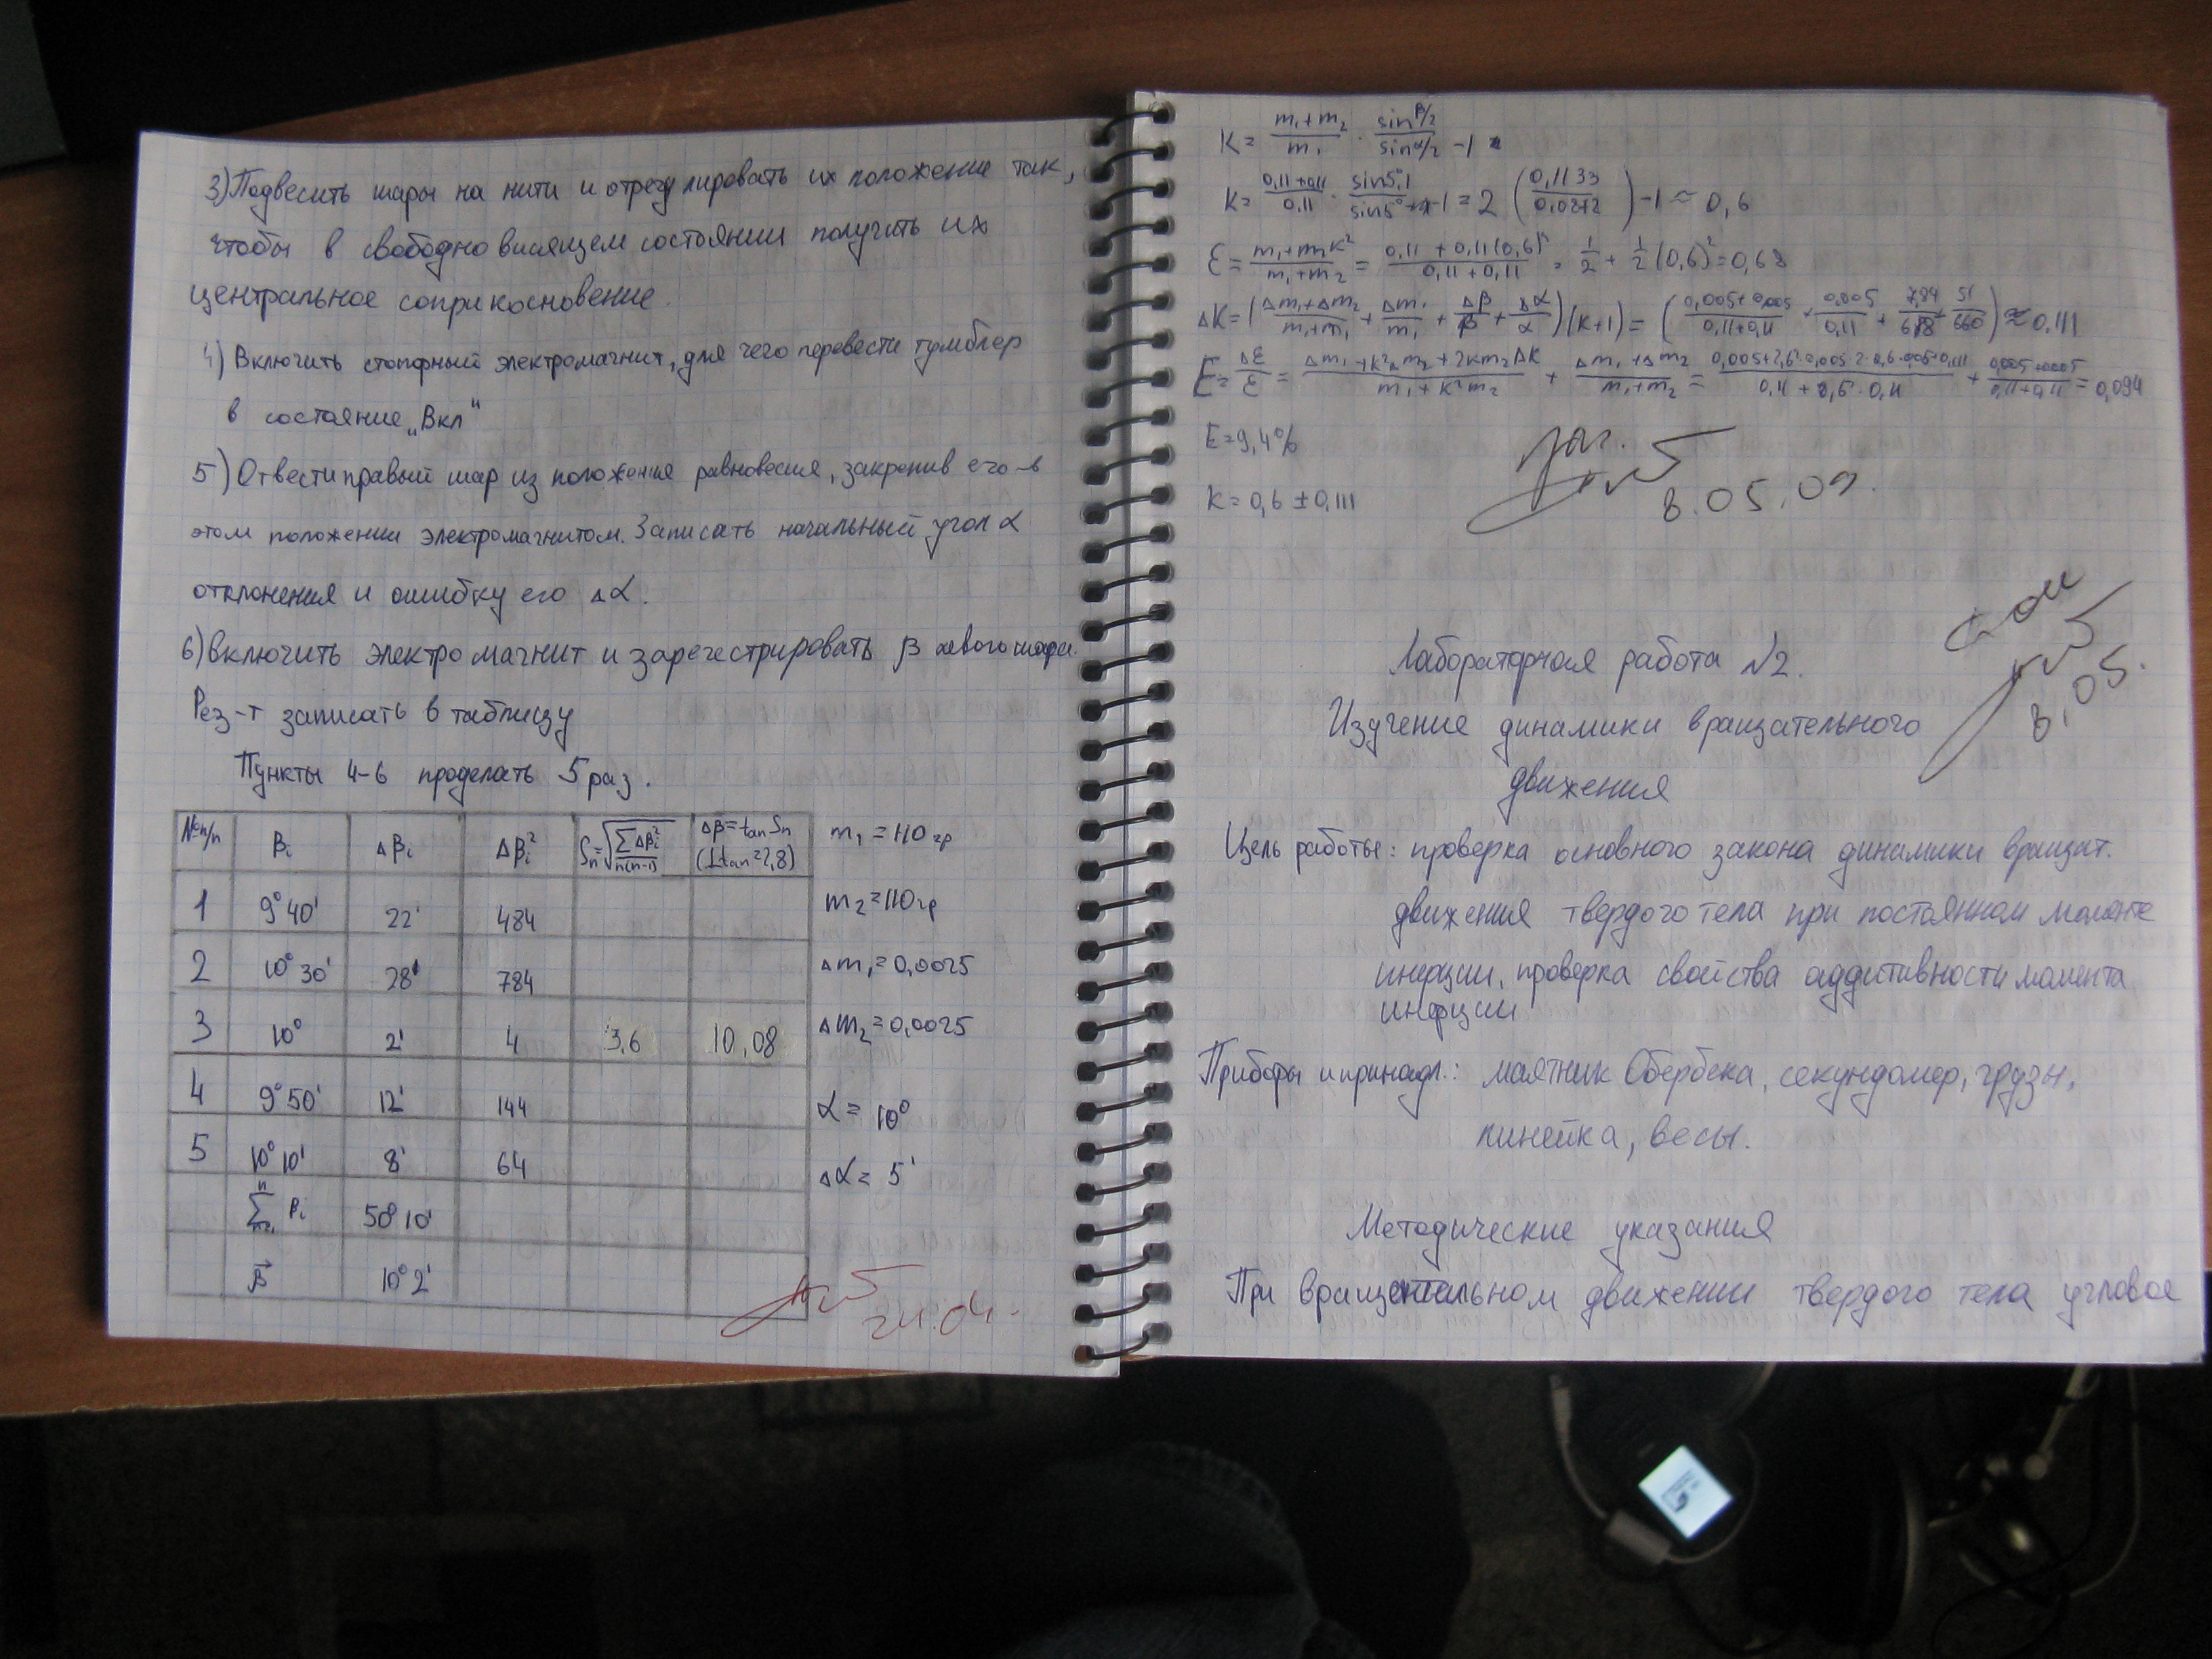 3) Подвесить шары на нити и отрегулировать их положение так,
чтобы в свободно висящем состоянии получить их
центральное соприкосновение.
4) Включить стопорный электромагнит, для чего перевести тумблер
в состояние „Вкл"
5) Отвести правый шар из положения равновесия, закрепив его в
этом положении электромагнитом. Записать начальный угол α
отклонения и ошибку его Δα.
6) Включить электромагнит и зарегестрировать β левого шара.
Рез-т записать в таблицу
Пункты 4-6 проделать 5 раз.
№ п/п βi Δβi Δβi² Sn=√(ΣΔβi²/n(n-1)) Δβ=tαn Sn (1tαn=2,8)
1 9°40' 22' 484
2 10°30' 28' 784
3 10° 2' 4 3,6 10,08
4 9°50' 12' 144
5 10°10' 8' 64
Σ βi 50°10'
β 10°2'
m₁=110 гр
m₂=110 гр
Δm₁=0,0025
Δm₂=0,0025
α= 10°
Δα= 5'
24.04.
K= (m₁+m₂)/m₁ · (sin β/2)/(sin α/2) -1
K= (0,11+0,11)/0,11 · sin5°,1/sin5° -1 = 2 (0,1133/) -1 ≈ 0,6
ℰ= (m₁+m₁K²)/(m₁+m₂) = (0,11+0,11(0,6)²)/(0,11+0,11) = 1/2 + 1/2 (0,6)²=0,68
ΔK= ((Δm₁+Δm₂)/(m₁+m₁) + Δm₁/m₁ + Δβ/β + Δα/α)(K+1) = ((0,005+0,005)/(0,11+0,11) + 0,005/0,11 + ) ≈ 0,111
E= Δℰ/ℰ = (Δm₁+K²Δm₂+2Km₂ΔK)/(m₁+K²m₂) + (Δm₁+Δm₂)/(m₁+m₂) = + (0,005+0,005)/(0,11+0,11) = 0,094
E=9,4%
K=0,6 ± 0,111
8.05.09.
8.05.
Лабораторная работа №2.
Изучение динамики вращательного
движения
Цель работы: проверка основного закона динамики вращат.
движения твердого тела при постоянном моменте
инерции, проверка свойства аддитивности момента
инерции
Приборы и принадл.: маятник Обербека, секундомер, грузы,
линейка, весы.
Методические указания
При вращательном движении твердого тела угловое